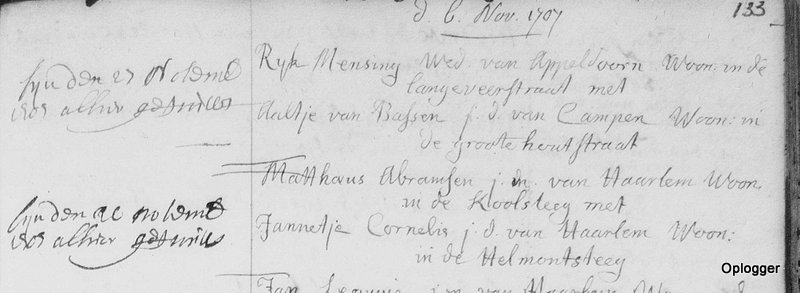 d. 6. Nov. 1707
133
Ryk Mensing Wed. van Appeldoorn Woon: in de
langeveerstraat met
Aaltje van Bassen j. d. van Campen Woon: in
de groote houtstraat
sijn den 27
alhier getrout
Matthaus Abramsen j. m. van Haarlem Woon.
in de Koolsteeg met
Jannetje Cornelis j. d. van Haarlem Woon:
in de Helmontsteeg
sijn den
alhier getrout
Jan van Haarlem
Oplogger